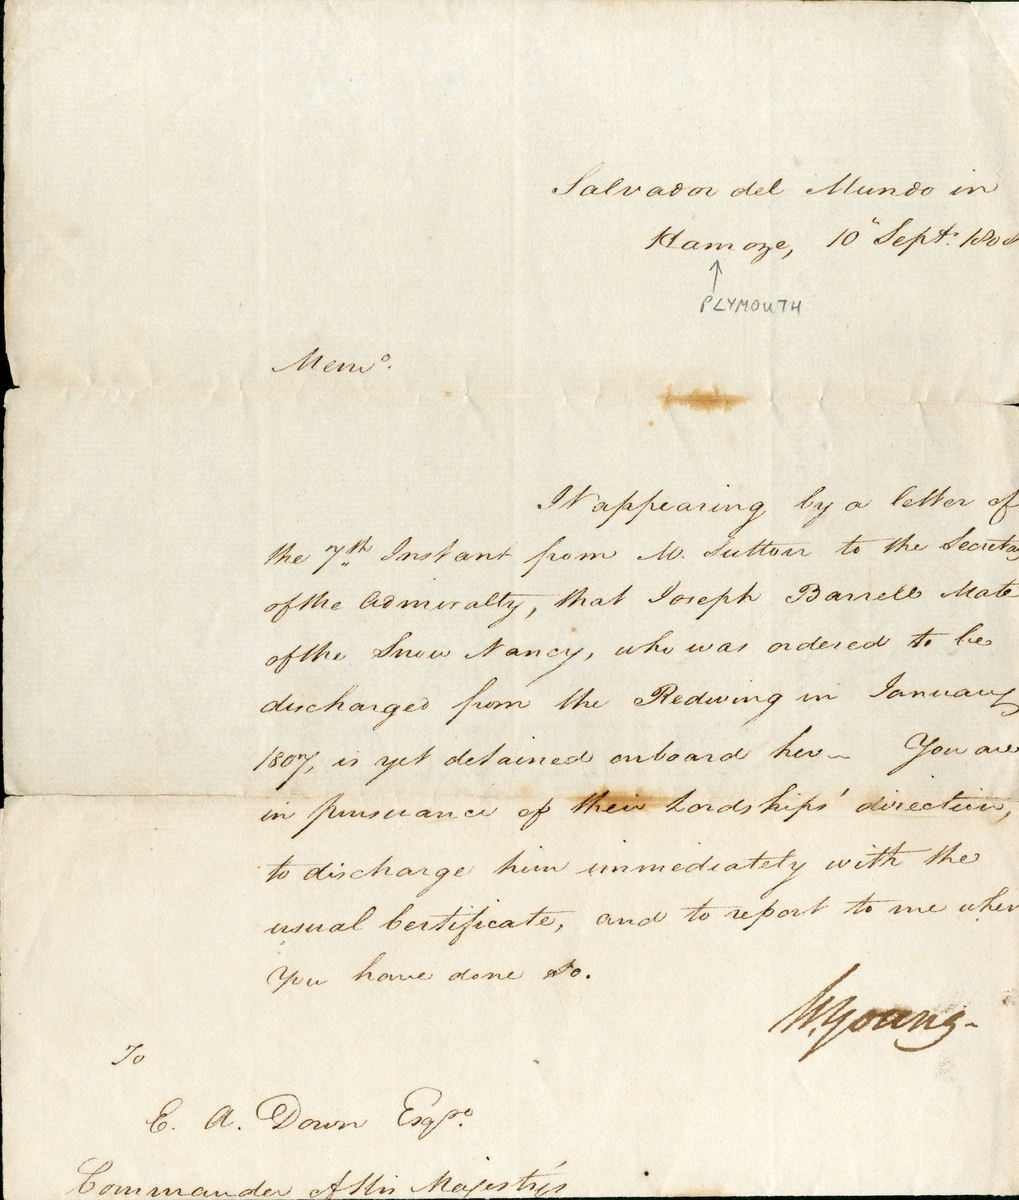 Salvador del Mundo in
Hamoze, 10" Sept. 1808
PLYMOUTH
Memo.
It appearing by a letter of
the 7th Instant from M. Sutton to the Secretary
of the Admiralty, that Joseph Barrell Mate
of the Snow Nancy, who was ordered to be
discharged from the Redwing in January
1807, is yet detained onboard her — You are
in pursuance of their Lordships' direction,
to discharge him immediately with the
usual Certificate, and to report to me when
you have done so.
W. Young-
To
E. A. Down Esqre.
Commander of His Majesty's